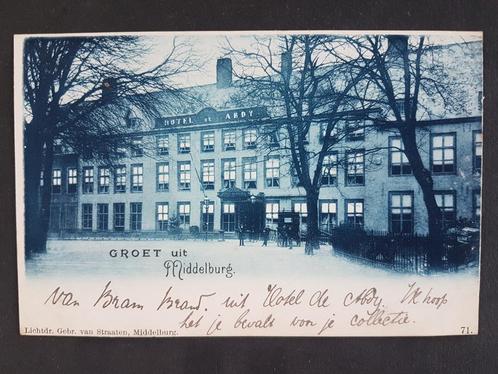 HOTEL de ABDY
GROET uit
Middelburg.
van Bram Brand, uit Hotel de Abdy. Ik hoop
het je bevalt voor je collectie.
Lichtdr. Gebr. van Straaten, Middelburg.
71.